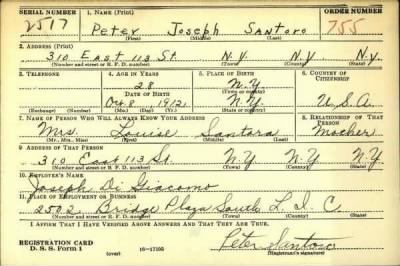 SERIAL NUMBER 1. NAME (Print) ORDER NUMBER
2517 Peter Joseph Santoro 755
(First) (Middle) (Last)
2. ADDRESS (Print)
310 East 113 St. N.Y. N.Y. N.Y.
(Number and street or R. F. D. number) (Town) (County) (State)
3. TELEPHONE 4. AGE IN YEARS 5. PLACE OF BIRTH 6. COUNTRY OF CITIZENSHIP
28 N.Y.
DATE OF BIRTH (Town or county)
Oct. 8 1912 N.Y. U.S.A.
(Exchange) (Number) (Mo.) (Day) (Yr.) (State or country)
7. NAME OF PERSON WHO WILL ALWAYS KNOW YOUR ADDRESS 8. RELATIONSHIP OF THAT PERSON
Mrs. Louise Santora Mother
(Mr., Mrs., Miss) (First) (Middle) (Last)
9. ADDRESS OF THAT PERSON
310 East 113 St. N.Y. N.Y. N.Y.
(Number and street or R. F. D. number) (Town) (County) (State)
10. EMPLOYER'S NAME
Joseph Di Giacomo
11. PLACE OF EMPLOYMENT OR BUSINESS
2502 Bridge Plaza South L.I.C.
(Number and street or R. F. D. number) (Town) (County) (State)
I AFFIRM THAT I HAVE VERIFIED ABOVE ANSWERS AND THAT THEY ARE TRUE.
REGISTRATION CARD
D. S. S. Form 1 (over) 16-17105 Peter Santoro
(Registrant's signature)